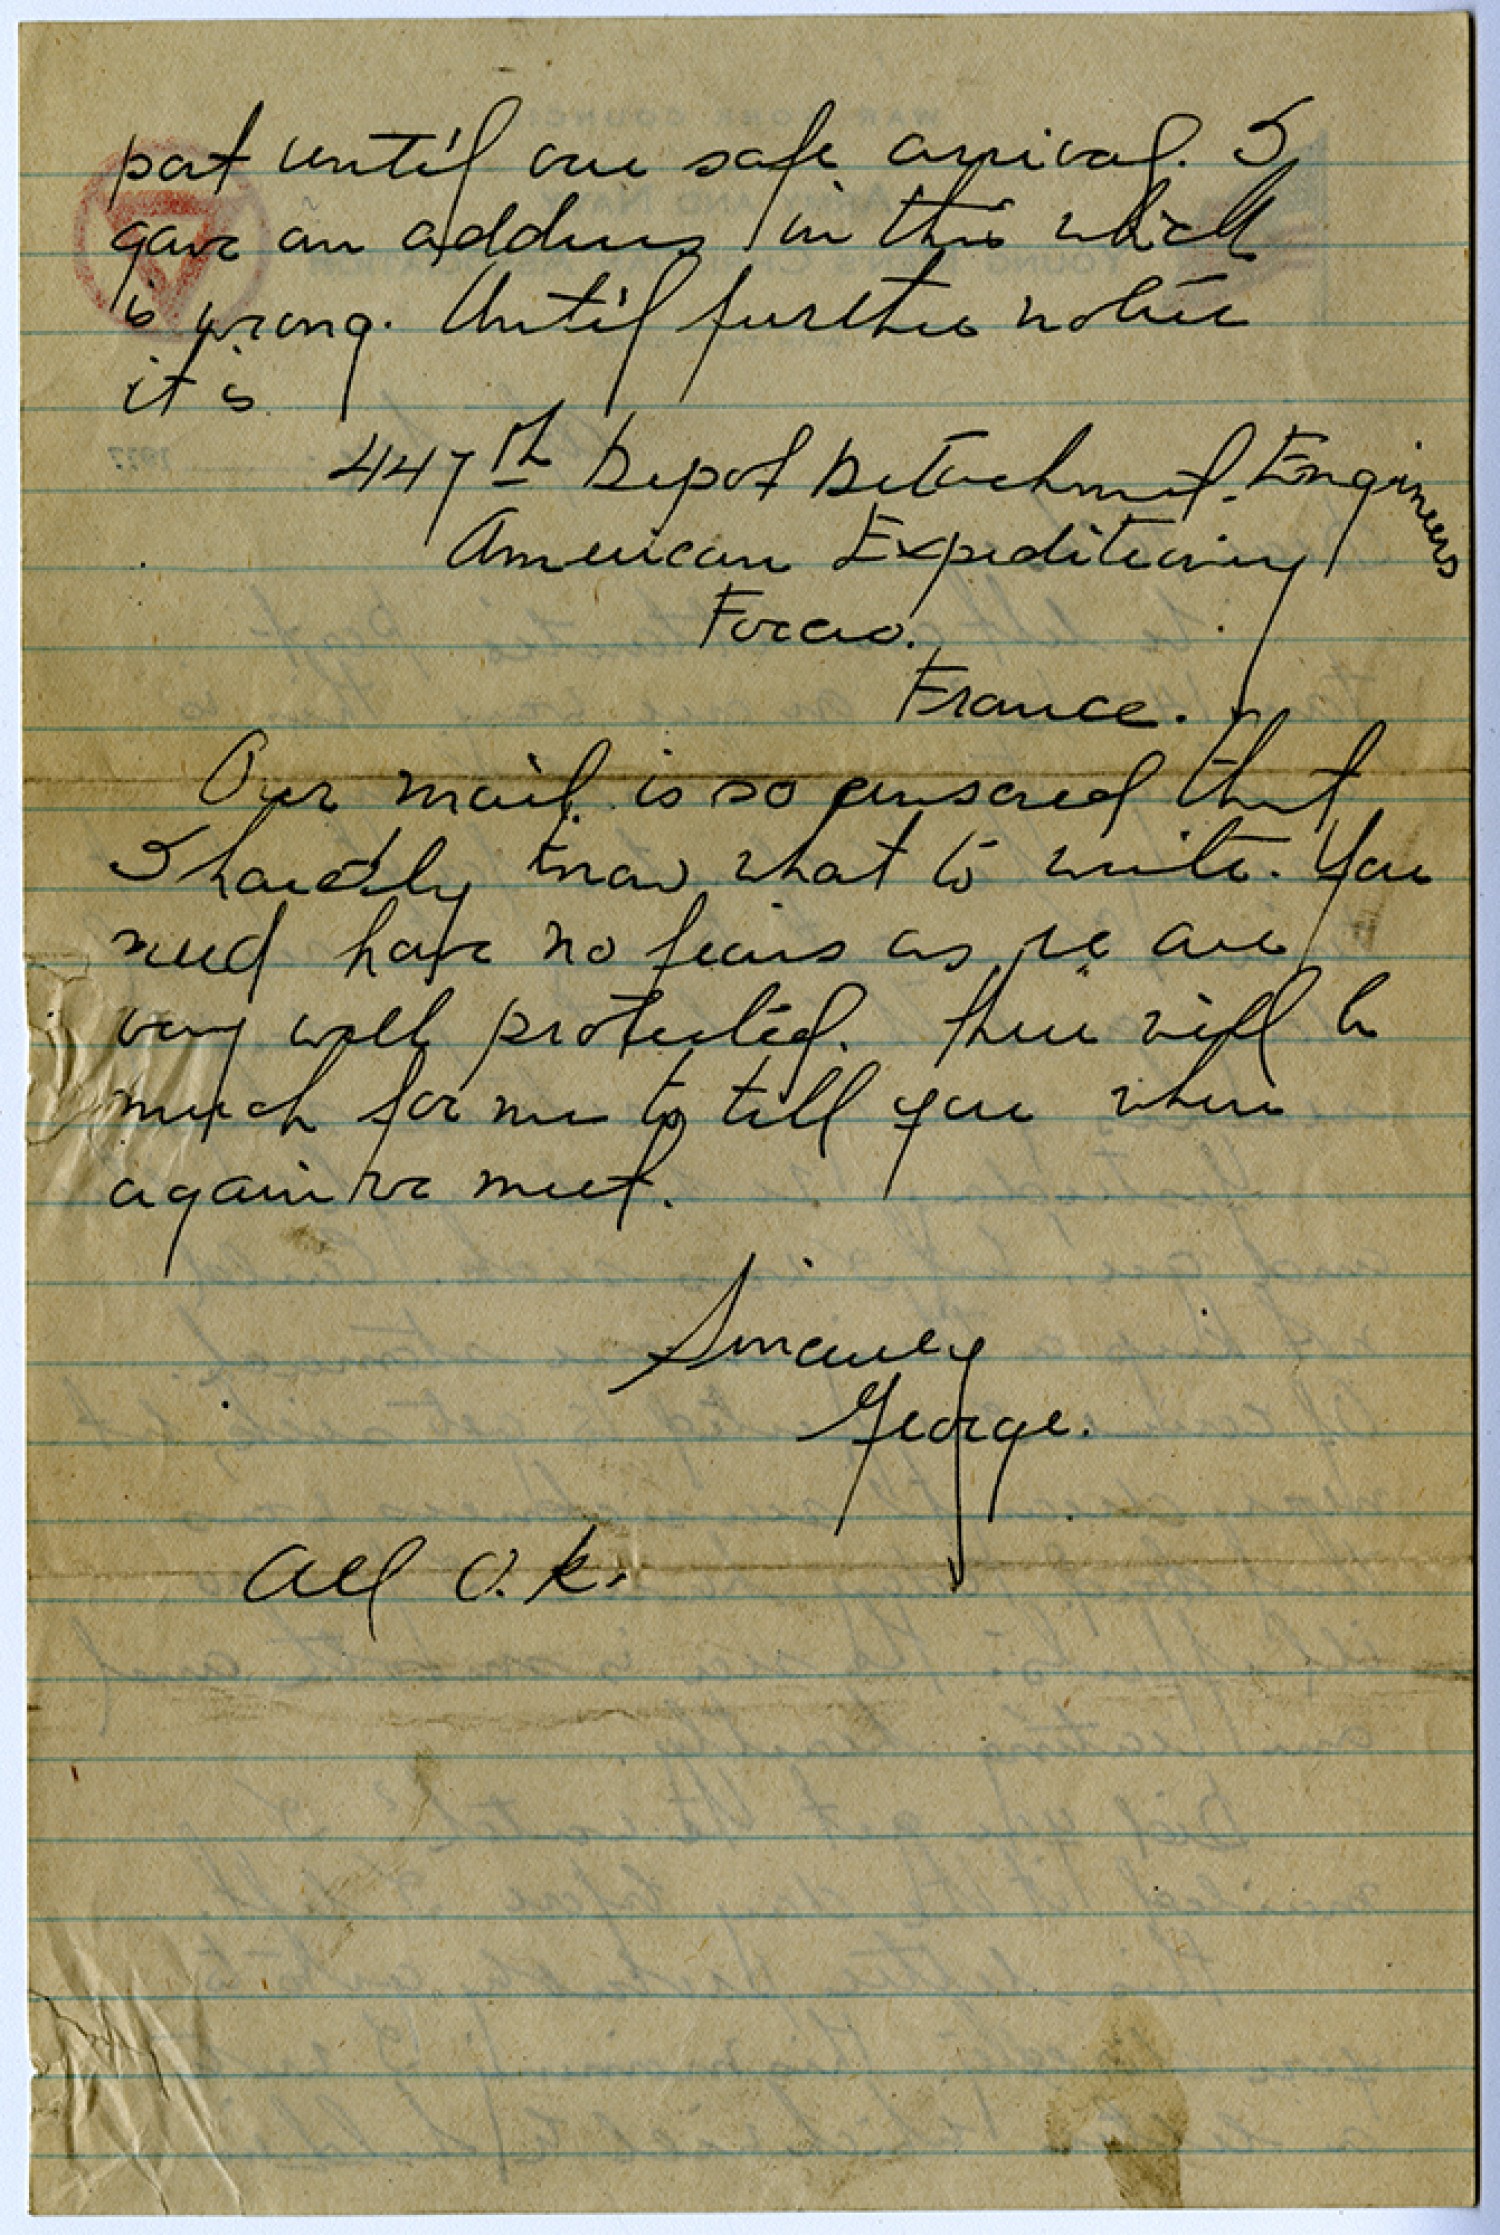 port until our safe arrival. I
gave an address in this which
is wrong. Until further notice
it is
447th Depot Detachment. Engineers
American Expeditionary
Forces.
France.
Our mail is so censored that
I hardly know what to write. You
need have no fears as we are
very well protected. There will be
much for me to tell you when
again we meet.
Sincerely
George.
All O.K.